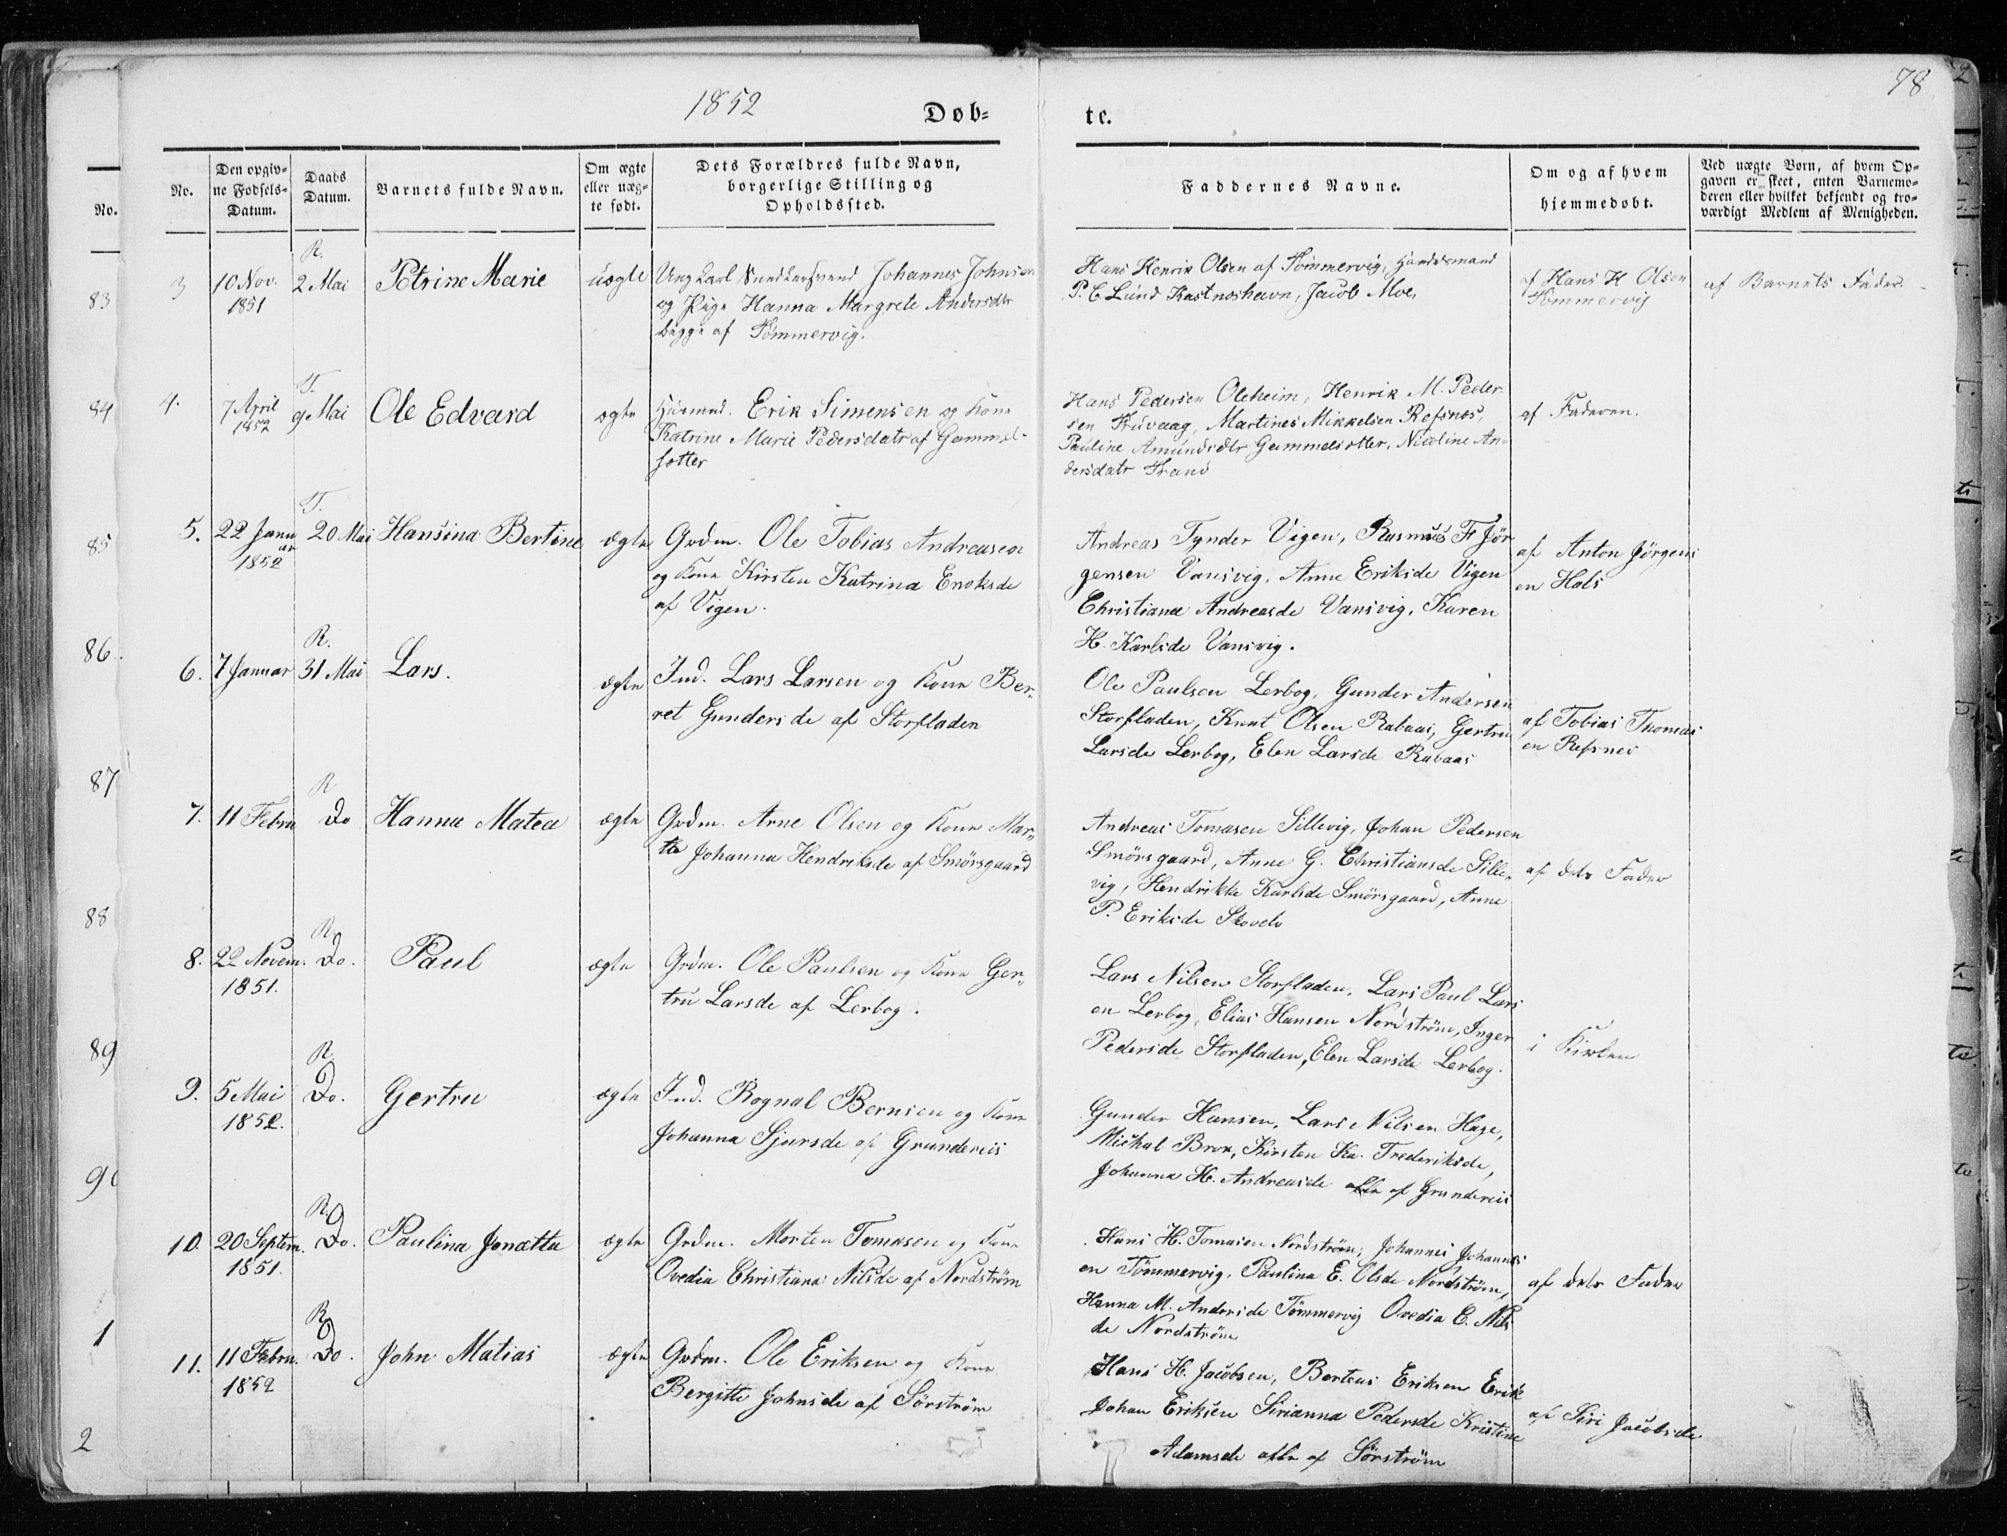 1852
78
Døb=
te.
No.
Den opgiv-
ne Fødsels-
Datum.
Daabs
Datum.
Barnets fulde Navn.
Om ægte
eller uæg-
te født.
Dets Forældres fulde Navn,
borgerlige Stilling og
Opholdssted.
Faddernes Navne.
Om og af hvem
hjemmedøbt.
Ved uægte Børn, af hvem Op-
gaven er skeet, enten Barnemo-
deren eller hvilket bekjendt og tro-
værdigt Medlem af Menigheden.
No.
83
84
85
86.
87
88
89
1
2
3
10 Nov.
1851
R.
2 Mai
Petrine Marie
uægte
Ungkarl Johannes Johnsen
og Pige Hanna Margrete Andersdtr
begge af Tømmervig.
Hans Henrik Olsen af Tømmervig, Huusmand
P. C Lund Kastneshavn, Jacob Moe,
af Hans H Olsen
Tømmervig
af Barnets Fader
4.
7 April
1852
T.
9 Mai
Ole Edvard
ægte
Huusmd. Erik Simensen og Kone
Katrine Marie Pedersdatr af Gammel-
sætter
Hans Pedersen Oleheim, Henrik M. Peder
sen Truvaag, Martines Mikkelsen Refsnes,
Pauline Amundsdtr Gammelsætter, Nicoline An-
dersdatr Trane
af Faderen.
5.
22 Janu
ar
1852
T.
20 Mai
Hansina Bertine
ægte
Grdm. Ole Tobias Andreasen
og Kone Kirsten Katrina Enoksde
af Vigen.
Andreas Tynder Vigen, Rasmus F Jör
gensen Vansvig, Anne Eriksde Vigen
Christiana Andreasde Vansvig, Karen
H. Karlsde Vansvig.
af Anton Jörgens
en Hals
6.
7 Januar
R.
31 Mai
Lars.
ægte
Ind. Lars Larsen og Kone Ber-
ret Gundersde af Storfladen
Ole Paulsen Lerbog, Gunder Andersen
Storfladen, Knut Olsen Rabaas, Gertru
Larsde Lerbog, Elen Larsde Rabaas
af Tobias Thomas
en Refsnes
7.
11 Febru
R
Do
Hanna Matea
ægte
Grdm. Arne Olsen og Kone Mar-
ta Johanna Hendriksde af Smörsgaard
Andreas Tomasen Sillevig, Johan Pedersen
Smörsgaard, Anne G. Christiansde Sille-
vig, Hendrikke Karlsde Smörsgaard, Anne
P. Eriksde Skovelv
af dets Fader
8.
22 Novem.
1851.
R.
Do.
Paul
ægte
Grdm. Ole Paulsen og Kone Ger-
tru Larsde af Lerbog.
Lars Nilsen Storfladen, Lars Paul Lars
en Lerbog, Elias Hansen Nordström, Inger
Pedersde Storfladen, Elen Larsde Lerbog.
i Kirken
9.
5 Mai
1852.
R.
Do.
Gertru
ægte
Ind. Rognal Bernsen og Kone
Johanna Sjursde af Grundereis
Gunder Hansen, Lars Nilsen Hage,
Mikal Brox, Kirsten Ka. Frederiksde,
Johanna H. Andreasde alle af Grundereis
10.
20 Septem.
1851.
R.
Do.
Paulina Jonætta
ægte
Grdm. Morten Tomasen og Kone
Ovedia Christiana Nilsde af Nordström
Hans H. Tomasen Nordström, Johannes Johannes
en Tömmervig, Paulina E. Olsde Nordström,
Hanna M. Andersde Tömmervig Ovedia C. Nils
de Nordström
af dets Fader
11.
11 Febru.
1852
R
Do.
John Matias
ægte
Grdm. Ole Eriksen og Kone
Bergitte Johnsde af Sörström
Hans H. Jacobsen, Berteus Eriksen Erik
Johan Eriksen Sirianna Pedersde Kristine
Adamsde alle af Sörström
af Siri Jacobsde